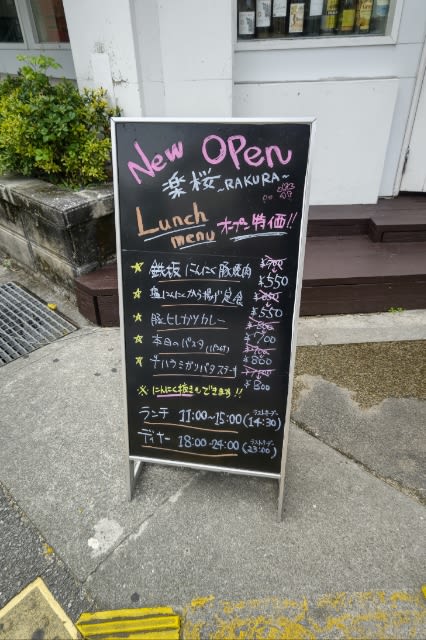 New OPen
楽桜~RAKURA~
Lunch menu オープン特価!!
鉄板にんにく豚焼肉 ¥700 ¥550
塩にんにくから揚げ定食 ¥650 ¥550
豚ヒレカツカレー ¥800 ¥700
本日のパスタ ¥700 ¥600
牛ハラミガリバタステーキ ¥800
※にんにく抜きもできます!!
ランチ 11:00~15:00(ラストオーダー 14:30)
ディナー 18:00-24:00(ラストオーダー 23:00)